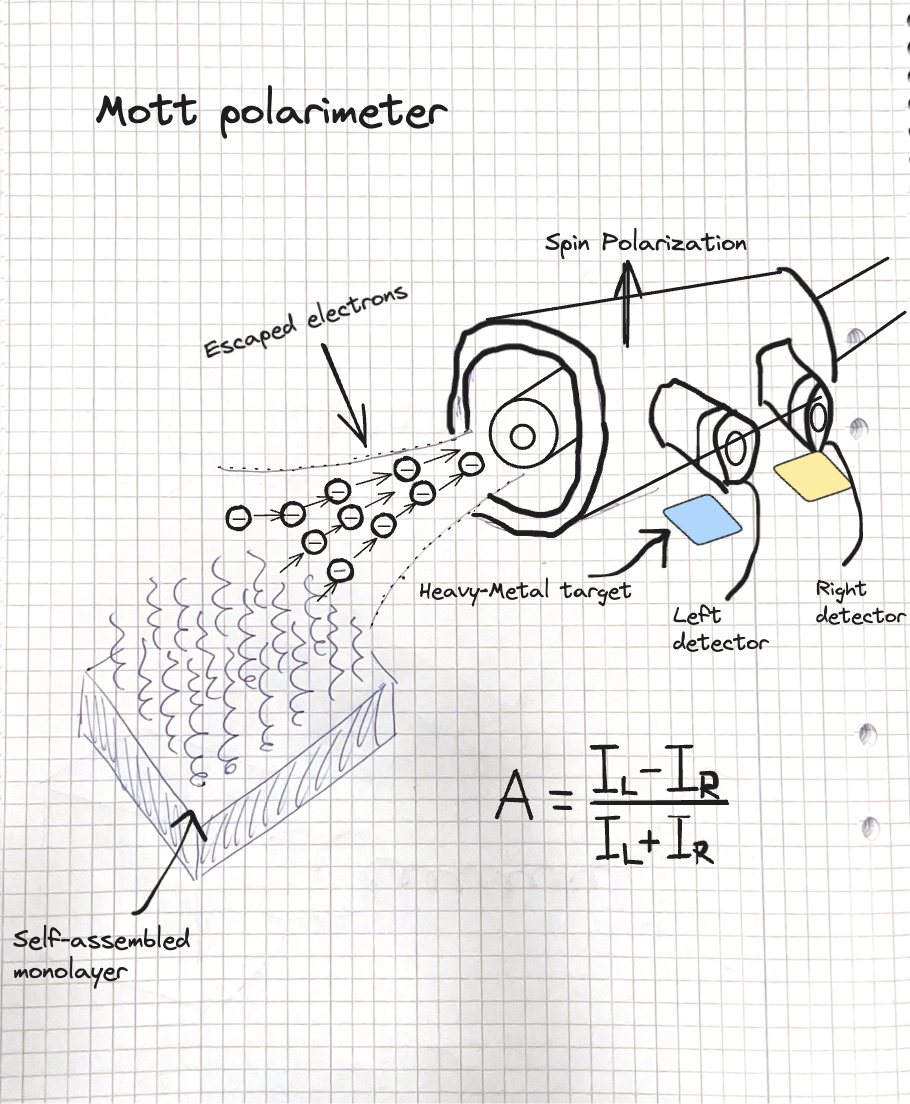 Mott polarimeter
Spin Polarization
Escaped electrons
Heavy-Metal target
Left
detector
Right
detector
A = (I_L - I_R) / (I_L + I_R)
Self-assembled
monolayer